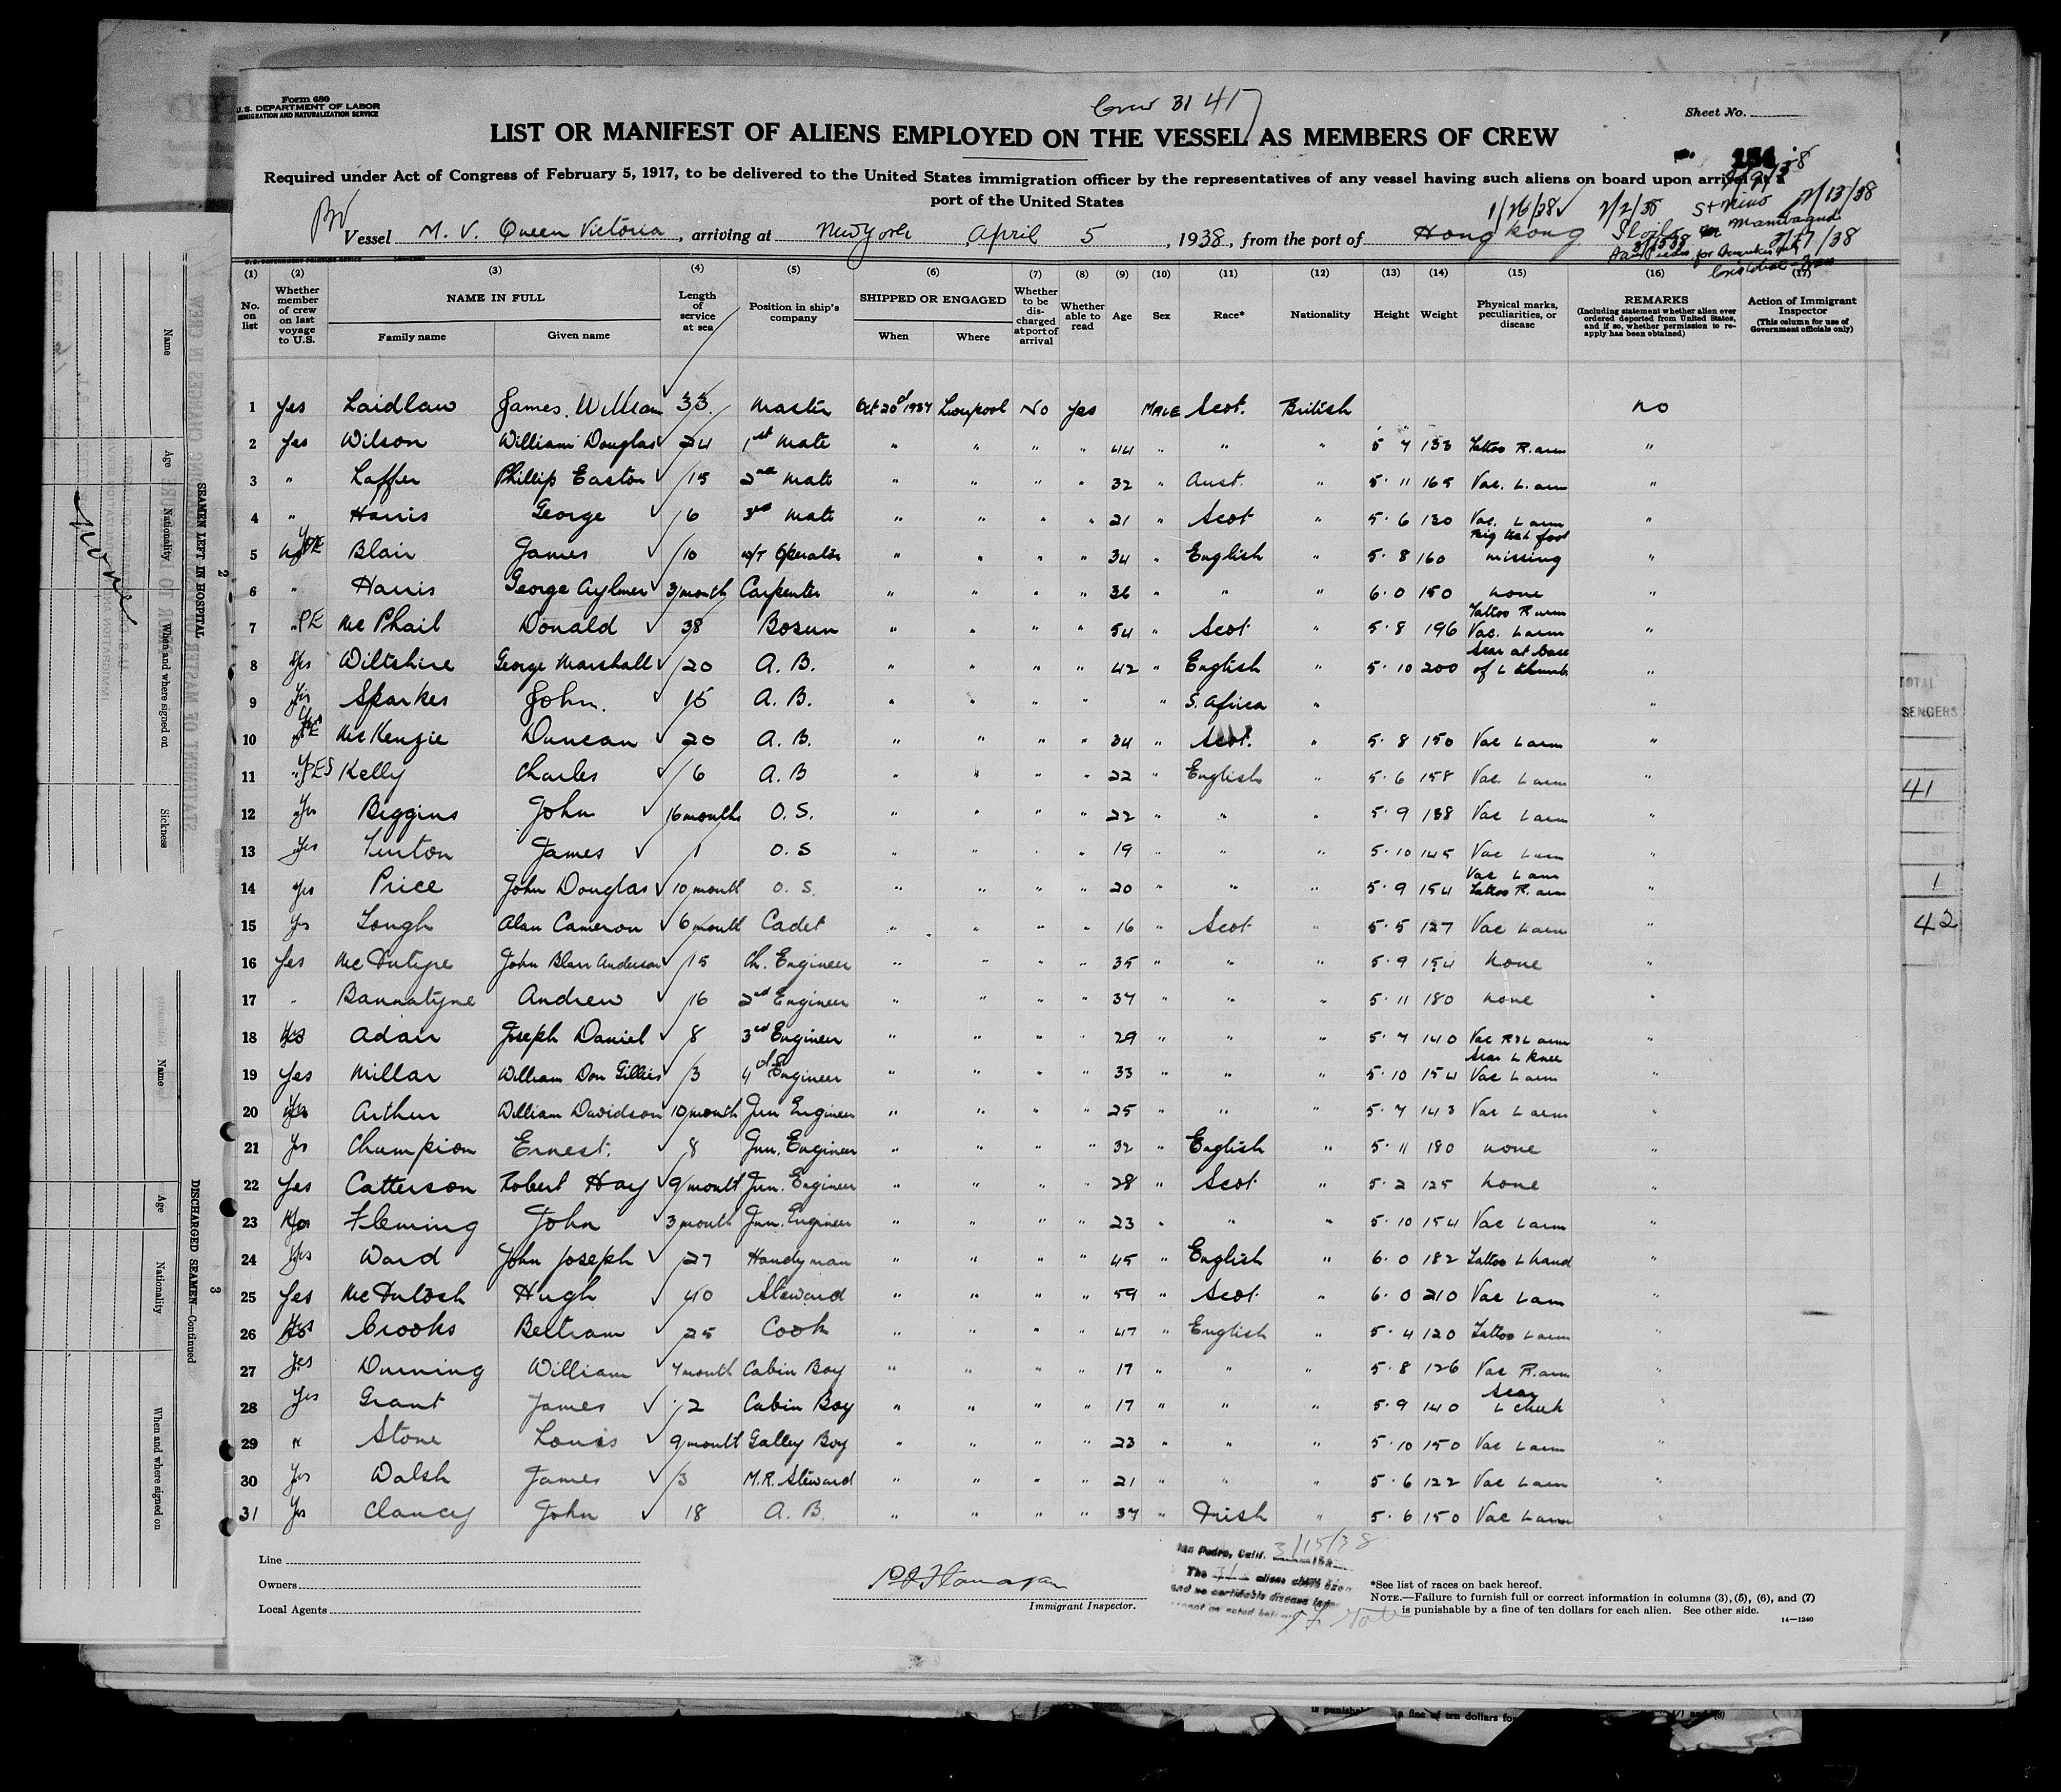 Form 680
U.S. DEPARTMENT OF LABOR
IMMIGRATION AND NATURALIZATION SERVICE
Crew 31 417
Sheet No.
LIST OR MANIFEST OF ALIENS EMPLOYED ON THE VESSEL AS MEMBERS OF CREW
Required under Act of Congress of February 5, 1917, to be delivered to the United States immigration officer by the representatives of any vessel having such aliens on board upon arrival at a
port of the United States
1/26/38 2/2/38 2/13/38
Vessel M. V. Queen Victoria, arriving at New York April 5, 1938, from the port of Hong Kong
(1) (2) (3) (4) (5) (6) (7) (8) (9) (10) (11) (12) (13) (14) (15) (16)
No. on list
Whether member of crew on last voyage to U.S.
NAME IN FULL
Family name Given name
Length of service at sea
Position in ship's company
SHIPPED OR ENGAGED
When Where
Whether to be discharged at port of arrival
Whether able to read
Age
Sex
Race*
Nationality
Height
Weight
Physical marks, peculiarities, or disease
REMARKS
(Including statement whether alien ever ordered deported from United States, and if so, whether permission to re-apply has been obtained)
Action of Immigrant Inspector
(This column for use of Government officials only)
1 Yes Laidlaw James William 33 Master Oct 20th 1937 Liverpool No Yes Male Scot. British No
2 Yes Wilson William Douglas 24 1st Mate " " " " 44 " " " 5 7 133 Tattoo R. arm "
3 " Laffer Phillip Easton 15 2nd Mate " " " " 32 " Aust. " 5 11 165 Vac. L. arm "
4 " Harris George 6 3rd Mate " " " " 21 " Scot " 5 6 130 Vac. L arm "
5 Blair James 10 W/T Operator " " " " 34 " English " 5 8 160 missing "
6 " Harris George Aylmer 3 month Carpenter " " " " 36 " " " 6 0 150 None "
7 " McPhail Donald 38 Bosun " " " " 54 " Scot " 5 8 196 Tattoo R arm Vac. L arm "
8 Yes Wiltshire George Marshall 20 A. B. " " " " 42 " English " 5 10 200 Scar at base of L thumb "
9 Yes Sparkes John. 15 A. B. " " " " " S. Africa " "
10 McKenzie Duncan 20 A. B. " " " " 34 " Scot. " 5 8 150 Vac L arm "
11 Kelly Charles 6 A. B " " " " 22 " English " 5 6 158 Vac. L arm "
12 Yes Biggins John 16 months O. S. " " " " 22 " " " 5 9 138 Vac L arm "
13 Yes Turton James 1 O. S " " " " 19 " " " 5 10 145 Vac L arm "
14 Yes Price John Douglas 10 month O. S. " " " " 20 " " " 5 9 154 Vac L arm Tattoo R. arm "
15 Yes Lough Alan Cameron 6 month Cadet " " " " 16 " Scot " 5 5 127 Vac L arm "
16 Yes McIntyre John Blair Anderson 15 Ch. Engineer " " " " 35 " " " 5 9 154 None "
17 " Bannatyne Andrew 16 2nd Engineer " " " " 37 " " " 5 11 180 None "
18 Yes Adair Joseph Daniel 8 3rd Engineer " " " " 29 " " " 5 7 140 Vac R & L arm "
19 Yes Millar William Don Gillies 3 4th Engineer " " " " 33 " " " 5 10 154 Scar L knee Vac L arm "
20 Yes Arthur William Davidson 10 month Jun Engineer " " " " 25 " " " 5 7 143 Vac L arm "
21 Yes Champion Ernest. 8 Jun. Engineer " " " " 32 " English " 5 11 180 None "
22 Yes Catterson Robert Hay 9 month Jun. Engineer " " " " 28 " Scot " 5 2 125 None "
23 Yes Fleming John 3 month Jun. Engineer " " " " 23 " " " 5 10 154 Vac L arm "
24 Yes Ward John Joseph 27 Handyman " " " " 45 " English " 6 0 182 Tattoo L hand "
25 Yes McIntosh Hugh 40 Steward " " " " 59 " Scot " 6 0 210 Vac L arm "
26 Yes Crooks Bertram 25 Cook " " " " 47 " English " 5 4 120 Tattoo L arm "
27 Yes Durning William 7 month Cabin Boy " " " " 17 " " " 5 8 126 Vac R. arm "
28 Yes Grant James 2 Cabin Boy " " " " 17 " " " 5 9 140 Scar L cheek "
29 " Stone Louis 9 month Galley Boy " " " " 23 " " " 5 10 150 Vac L arm "
30 Yes Walsh James 3 M.R. Steward " " " " 21 " " " 5 6 122 Vac L arm "
31 Yes Clancy John 18 A. B. " " " " 37 " Irish " 5 6 150 Vac L arm "
Line
Owners
Local Agents
Immigrant Inspector.
San Pedro, Calif. 3/15/38
*See list of races on back hereof.
NOTE.—Failure to furnish full or correct information in columns (3), (5), (6), and (7)
is punishable by a fine of ten dollars for each alien. See other side.
14—1240
SEAMEN LEFT IN HOSPITAL
Name
Age
Nationality
When and where signed on
Sickness
None
2
DISCHARGED SEAMEN—Continued
3
Name
Age
Nationality
When and where signed on
TOTAL
41
1
42